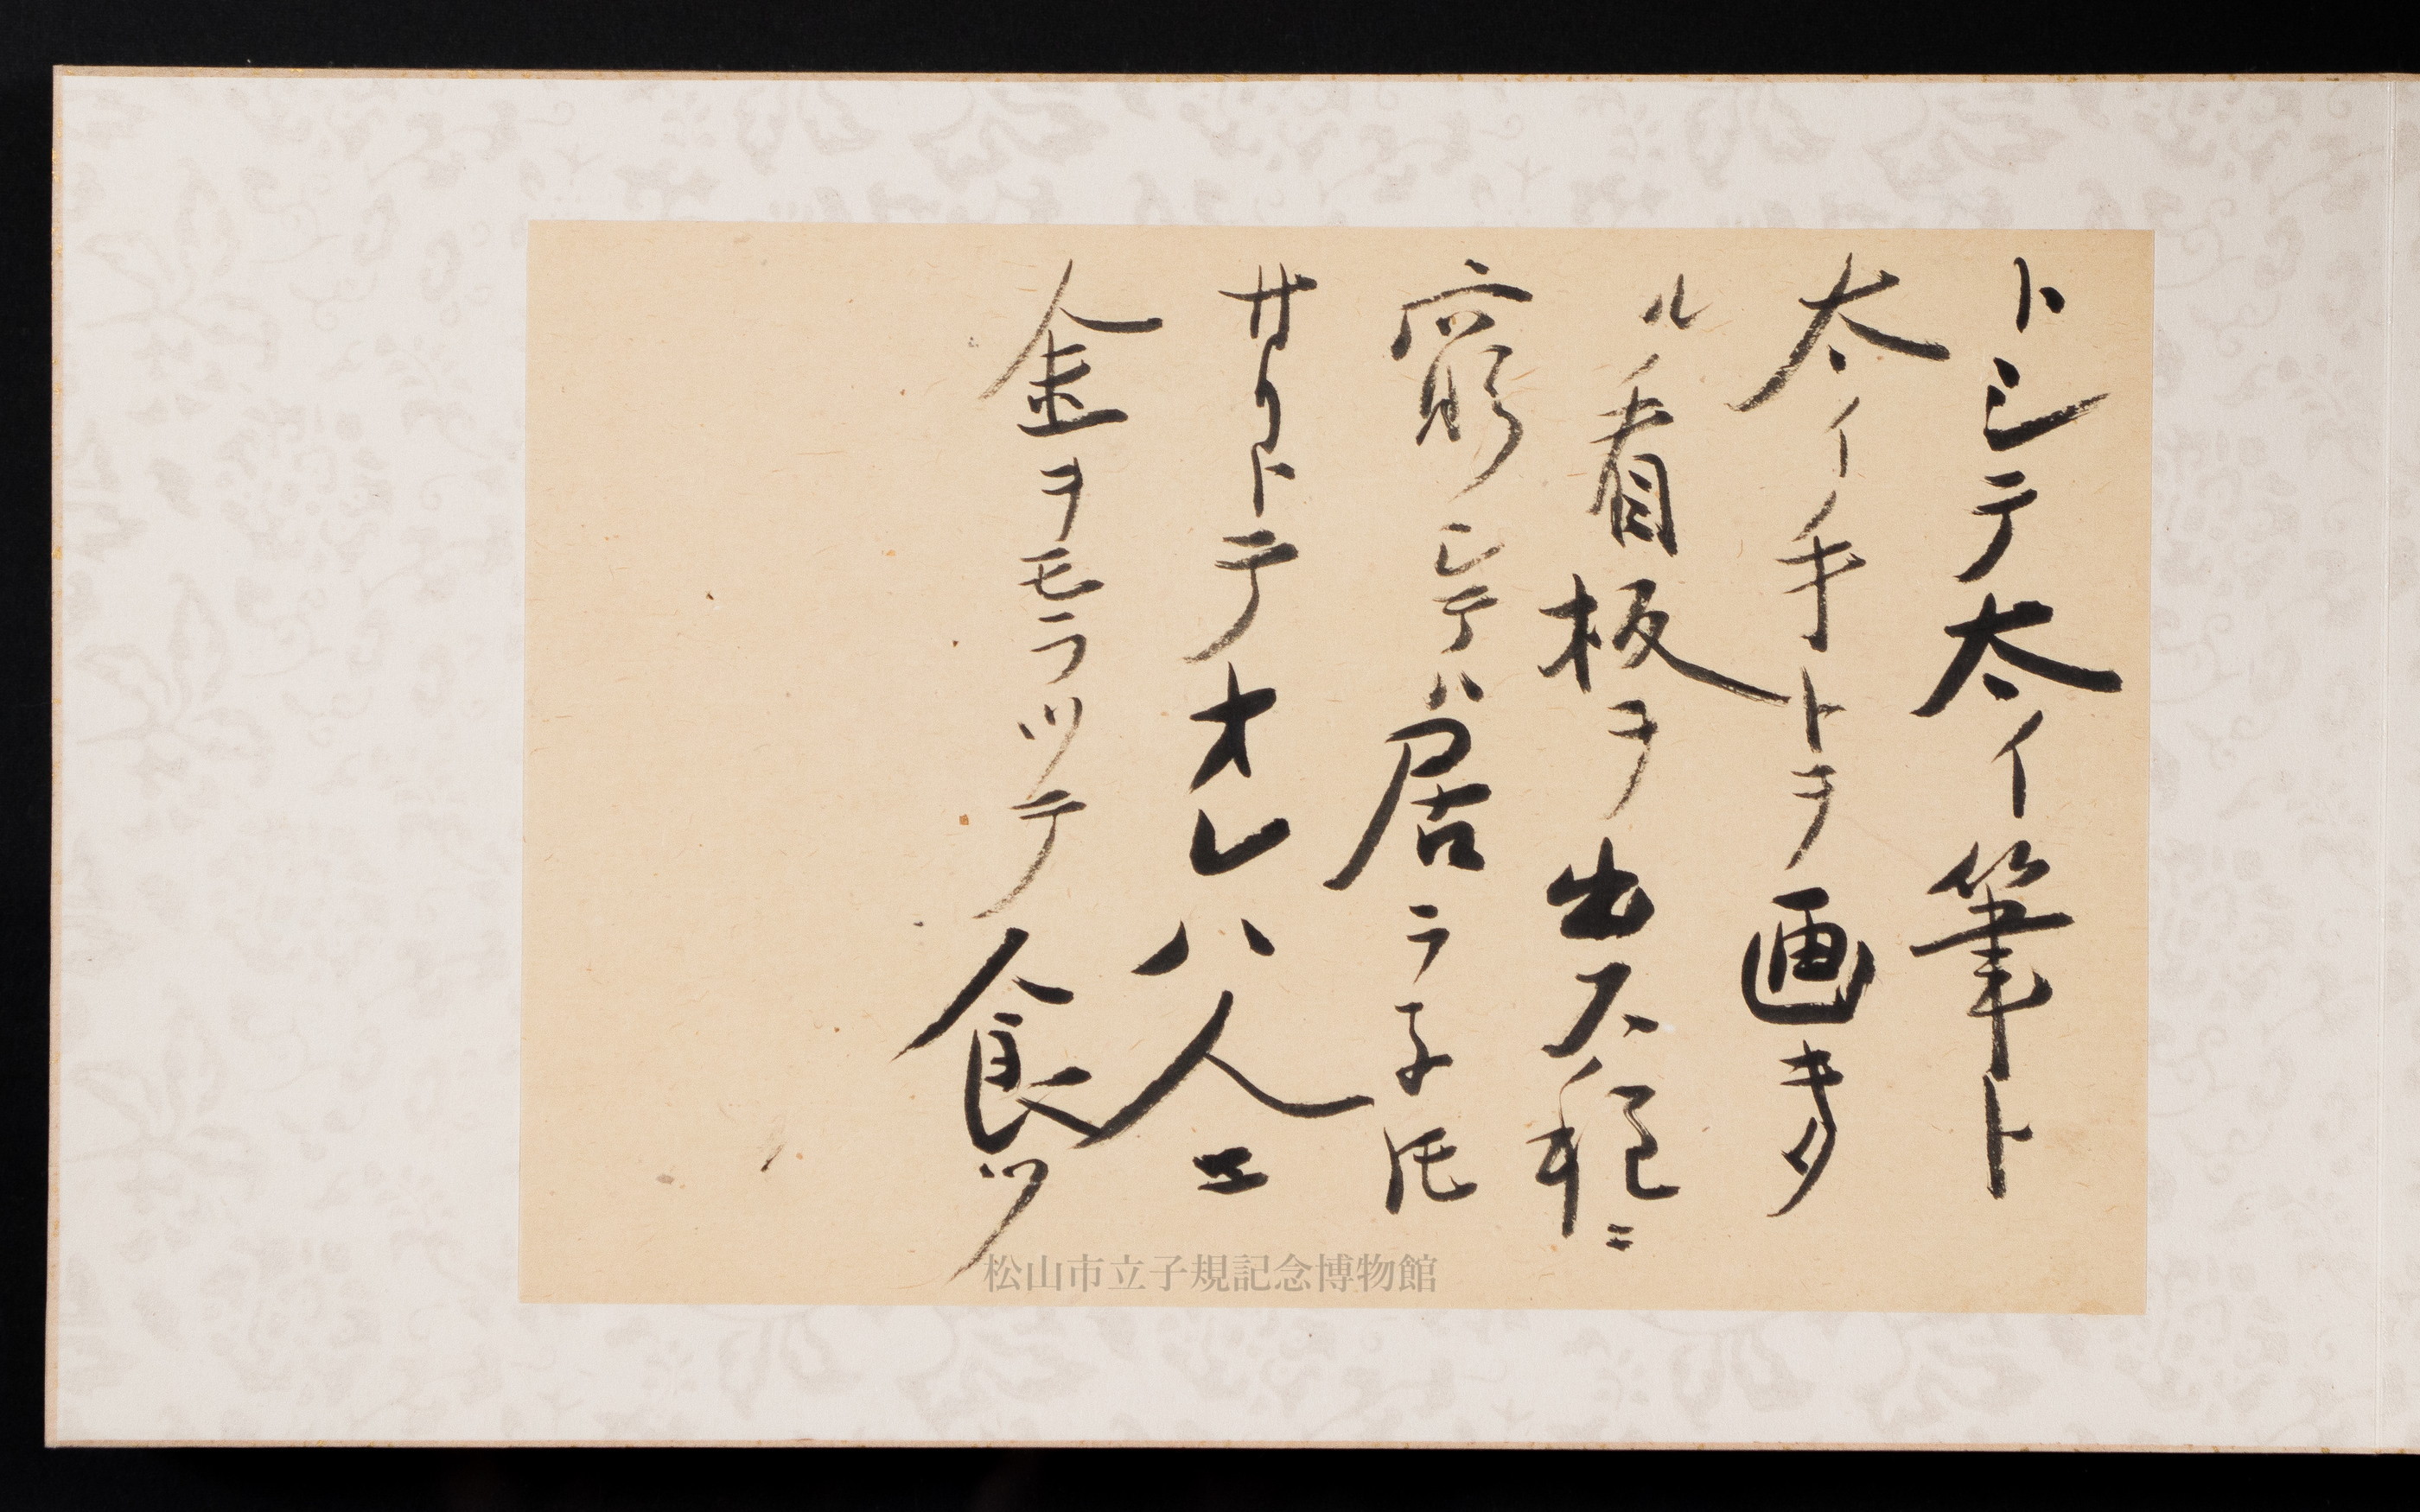 トシテ太イ筆ト
太イ手トヲ画キタ
ル看板ヲ出ス程ニ
窮シテハ居ラネ𪜈
サリトテオレハ人ニ
金ヲモラツテ食ツ
松山市立子規記念博物館